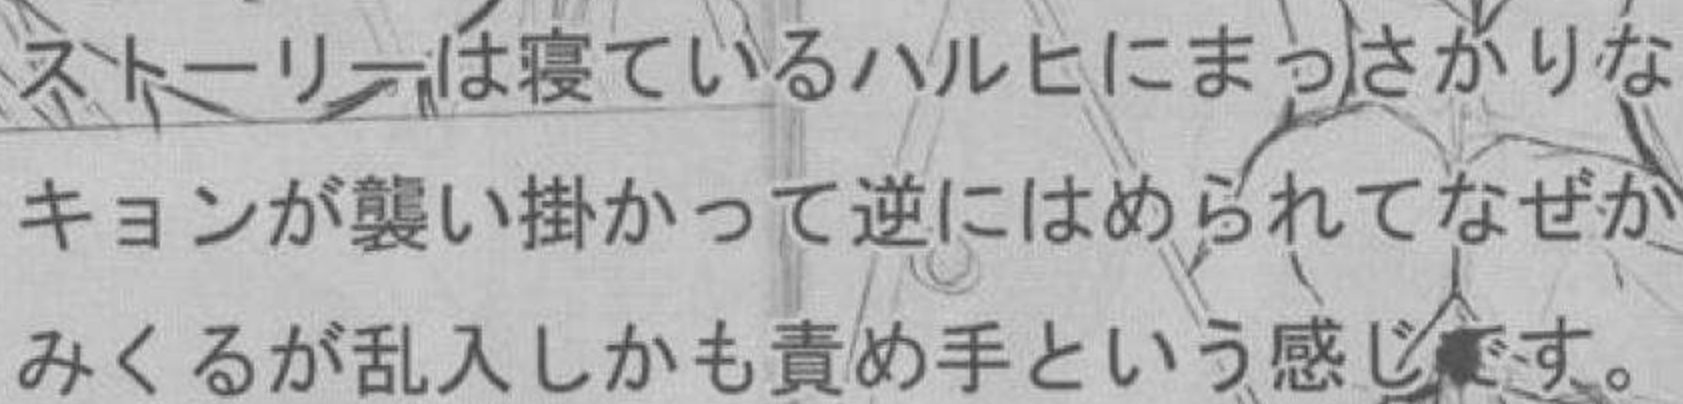 ストーリーは寝ているハルヒにまっさかりな
キョンが襲い掛かって逆にはめられてなぜか
みくるが乱入しかも責め手という感じです。